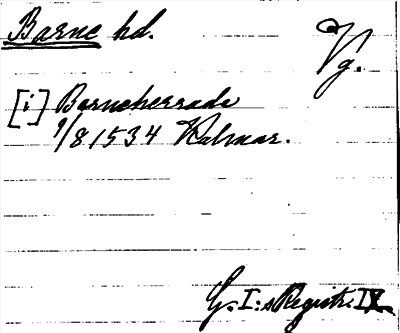 Barne hd.
Vg.
[i] Barneherrade
9/8 1534 Kalmar.
G. I:s Registr. IX.